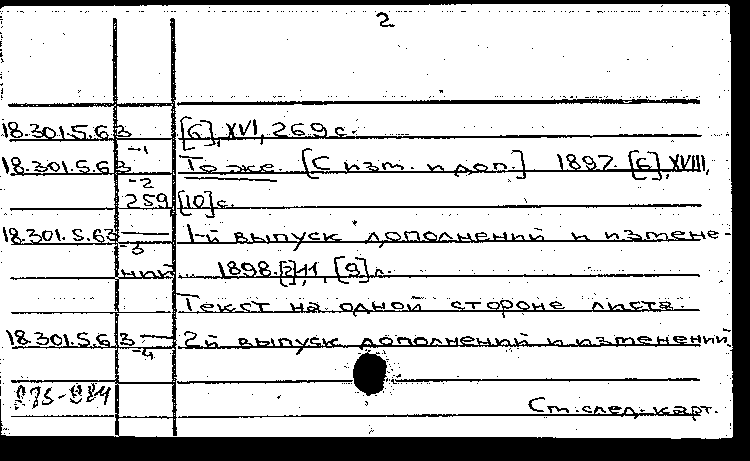 2
18.301.5.63 [6], XVI, 269 с.
-1
18.301.5.63 То же. [С изм. и доп.] 1897. [6], XVIII,
-2
259, [10] с.
18.301.5.63 1-й выпуск дополнений и измене-
-3
ний... 1898. [2], 11, [9] л.
Текст на одной стороне листа.
18.301.5.63 2й выпуск дополнений и изменений
-4
См. след. карт.